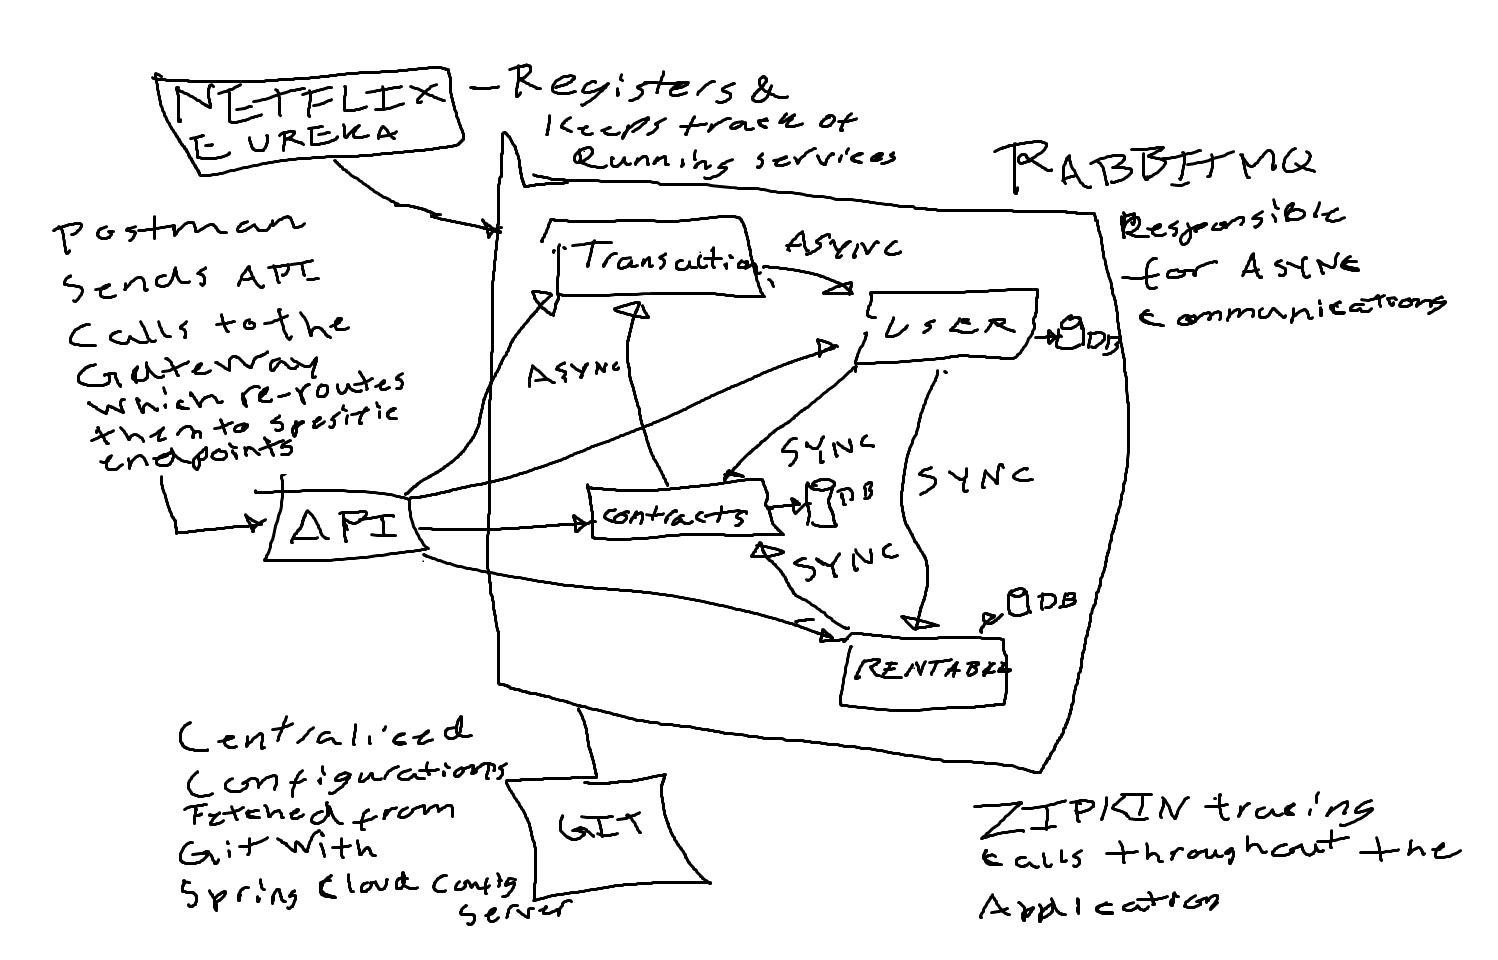 NETFLIX
EUREKA
- Registers &
Keeps track of
Running services
RABBITMQ
Responsible
for ASYNC
communications
Postman
Sends API
Calls to the
Gateway
which re-routes
them to spesific
endpoints
Transaction
ASYNC
USER
DB
ASYNC
SYNC
SYNC
contracts
DB
API
SYNC
DB
RENTABLE
Centraliced
Configurations
Fetched from
Git With
Spring Cloud Config
Server
GIT
ZIPKIN trasing
calls throughout the
Application